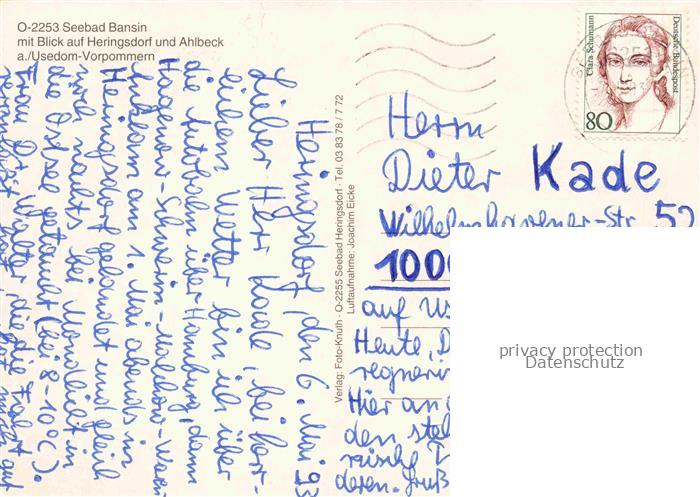 O-2253 Seebad Bansin
mit Blick auf Heringsdorf und Ahlbeck
a./Usedom-Vorpommern
Clara Schumann
Deutsche Bundespost
80
Heringsdorf, den 6. Mai 93
Lieber Herr Kade, bei herr-
lichem Wetter bin ich über
die Autobahn über Hamburg, dann
Hagenow-Schwerin-Malchow-Waren
Anklam am 1. Mai abends in
Heringsdorf gelandet und gleich
noch nachts bei Mondlicht in
die Ostsee getaucht (bei 8-10°C).
Frau Ost Walter, die die Fahrt
gut
Verlag: Foto-Knuth · O-2255 Seebad Heringsdorf · Tel. 03 83 78 / 7 72
Luftaufnahme: Joachim Eicke
Herrn
Dieter Kade
Wilhelmshavener-Str. 52
1000
auf Us
Heute, D
regneri
Hier an
den stel
rische
deren. Gruß
privacy protection
Datenschutz